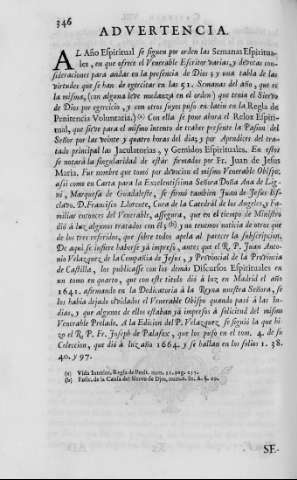 346
ADVERTENCIA.
AL Año Espiritual se siguen por orden las Semanas Espirituales, en que ofrece el Venerable Escritor varias, y devotas consideraciones para andar en la presencia de Dios; y una tabla de las
virtudes que se han de egercitar en las 52. Semanas del año, que es
la misma, (con alguna leve mudanza en el orden) que tenia el Siervo
de Dios por egercicio, y con otros suyos puso en latin en la Regla de
Penitencia Voluntaria.(a) Con ella se pone ahora el Relox Espiritual, que sirve para el mismo intento de traher presente la Pasion del
Señor por las veinte y quatro horas del dia; y por Apendices del tratado principal las Jaculatorias, y Gemidos Espirituales. En estos
se notará la singularidad de estár firmados por Fr. Juan de Jesus
Maria. Fue nombre que tomó por devocion el mismo Venerable Obispo.
asi como en Carta para la Excelentisima Señora Doña Ana de Ligni, Marquesa de Guadaleste, se firmó tambien Juan de Jesus Esclavo. D. Francisco Llorente, Cura de la Catedral de los Angeles, y Familiar entonces del Venerable, assegura, que en el tiempo de Ministro
dió á luz algunos tratados con él;(b) y no tenemos noticia de otros que
de los tres referidos, que sobre todos apela al parecer la subscripcion.
De aqui se infiere haberse yá impreso, antes que el R. P. Juan Antonio Velazquez de la Compañia de Jesus, y Provincial de la Provincia
de Castilla, los publicasse con los demás Discursos Espirituales en
un tomo en quarto, que con este titulo dió á luz en Madrid el año
1641. afirmando en la Dedicatoria á la Reyna nuestra Señora, se
los habia dejado olvidados el Venerable Obispo quando pasó á las Indias, y que algunos de ellos estaban yá impresos á solicitud del mismo
Venerable Prelado. A la Edicion del P. Velazquez se siguió la que hizo el R. P. Fr. Joseph de Palafox, que los puso en el tom. 4. de su
Coleccion, que dió á luz año 1664. y se hallan en los folios 1. 38.
40. y 97.
(a) Vida Interior, Regla de Penit. num.
(b) Fasc. de la Causa del Siervo de Dios,
SE-